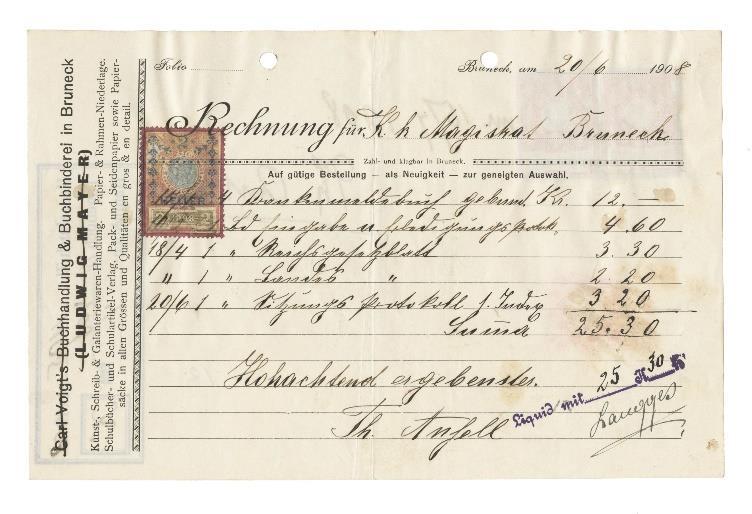 Carl Voigt's Buchhandlung & Buchbinderei in Bruneck
(LUDWIG MAYER)
Kunst-, Schreib- & Galanteriewaren-Handlung. Papier- & Rahmen-Niederlage.
Schulbücher- und Schulartikel-Verlag. Pack- und Seidenpapier sowie Papier-
säcke in allen Grössen und Qualitäten en gros & en detail.
Folio
Bruneck, am 20/6 1908
Rechnung für K k Magistrat Bruneck
Zahl- und klagbar in Bruneck.
Auf gütige Bestellung — als Neuigkeit — zur geneigten Auswahl.
Krankenmeldebuch gebund. Kr. 12.—
4.60
18/4 1 " Reichsgesetzblatt 3.30
" 1 " Landes " 2.20
20/6 1 " Sitzungs Protokoll 3.20
Summa 25.30
Hohachtend ergebenster.
Th. Ansell
Liquid mit 25 K 30 H